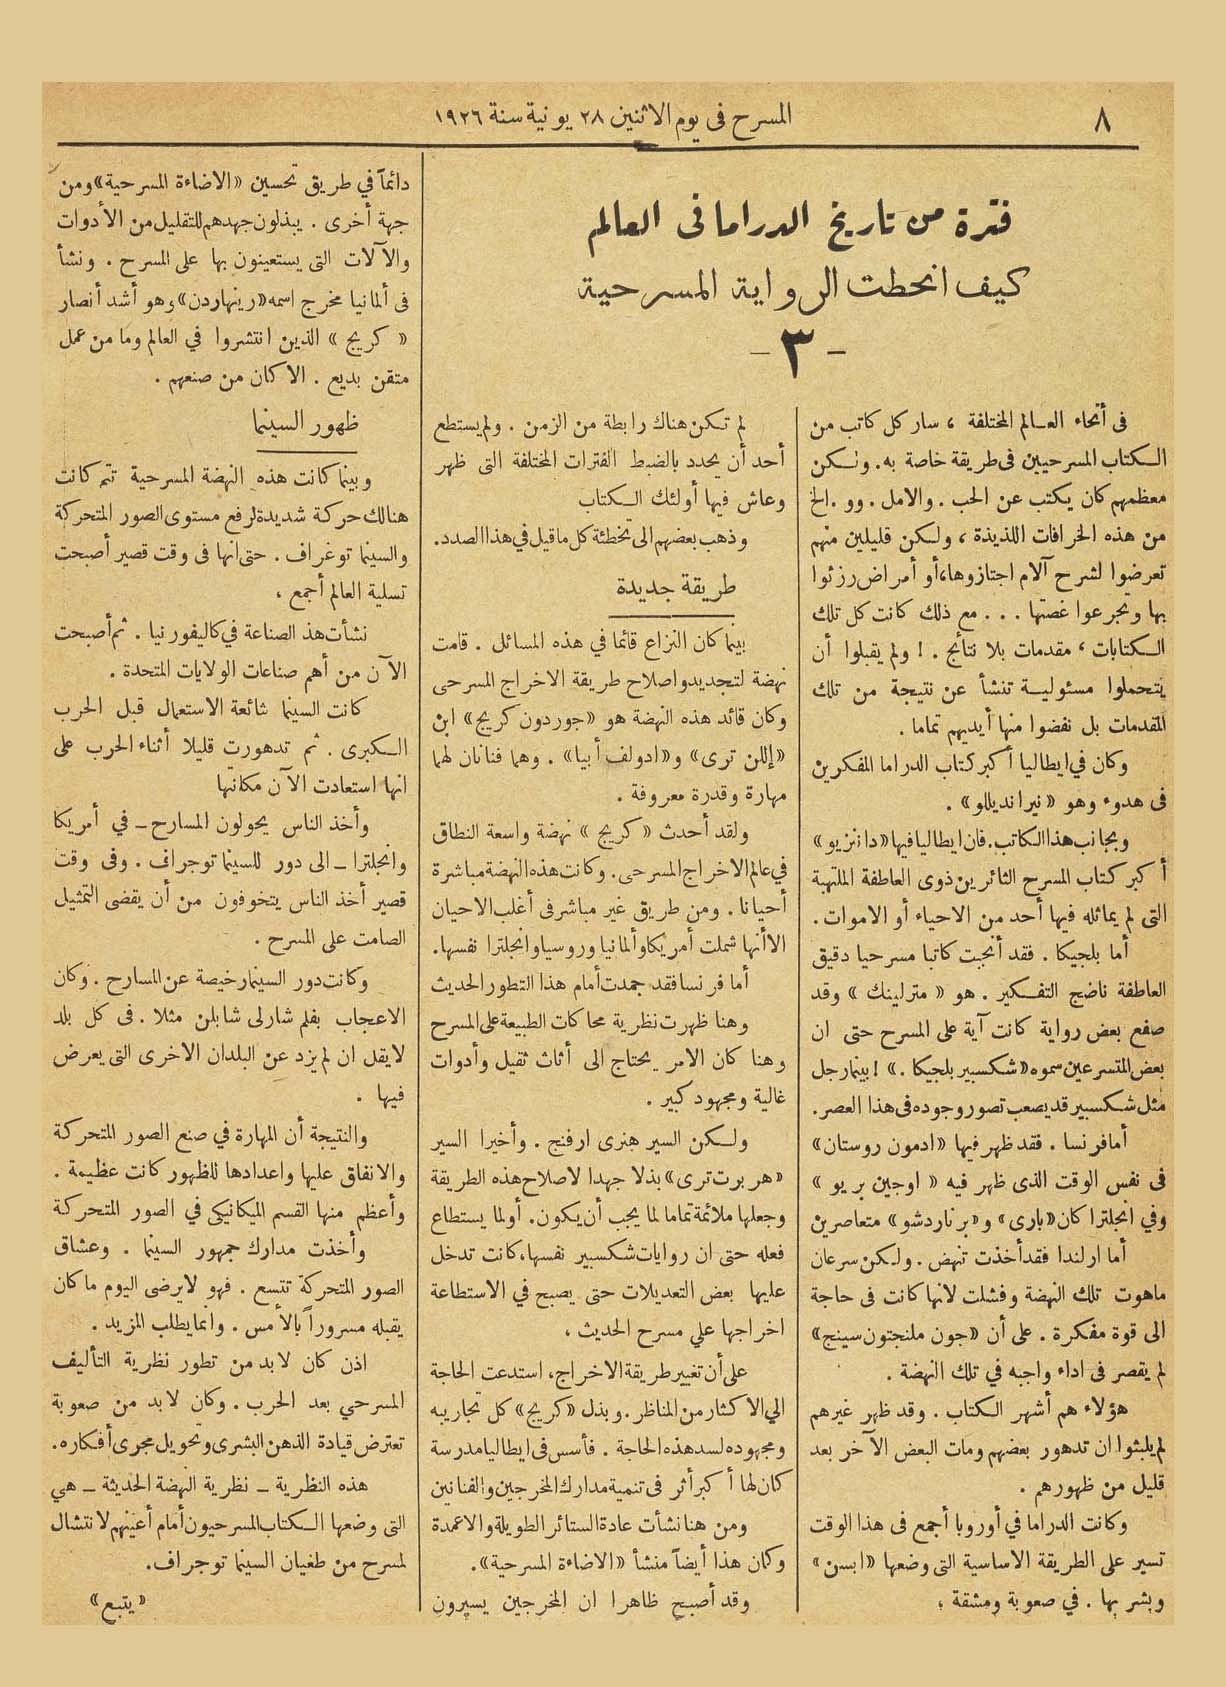 ٨
المسرح فى يوم الاثنين ٢٨ يونية سنة ١٩٢٦
فترة من تاريخ الدراما فى العالم
كيف انحطت الرواية المسرحية
– ٣ –
فى أنحاء العـالم المختلفة ، سار كل كاتب من
الكتاب المسرحيين فى طريقة خاصة به. ولكن
معظمهم كان يكتب عن الحب . والامل . وو . الخ
من هذه الخرافات اللذيذة ، ولكن قليلين منهم
تعرضوا لشرح آلام اجتازوها،أو أمراض رزئوا
بها وتجرعوا غصتها . . . مع ذلك كانت كل تلك
الكتابات ، مقدمات بلا نتائج . ! ولم يقبلوا أن
يتحملوا مسئولية تنشأ عن نتيجة من تلك
المقدمات بل نفضوا منها أيديهم تماما .
وكان في ايطاليا أكبر كتاب الدراما المفكرين
فى هدوء وهو «نيرانديللو» .
وبجانب هذا الكاتب. فان ايطاليا فيها «داننزيو»
أكبر كتاب المسرح الثائرين ذوى العاطفة الملتهبة
التى لم يماثله فيها أحد من الاحياء أو الاموات .
أما بلجيكا . فقد أنجبت كاتبا مسرحيا دقيق
العاطفة ناضج التفكير . هو « مترلينك » وقد
صفع بعض رواية كانت آية على المسرح حتى ان
بعض المتسرعين سموه «شكسبير بلجيكا .» ! بينما رجل
مثل شكسبير قد يصعب تصور وجوده فى هذا العصر .
أما فرنسا . فقد ظهر فيها «ادمون روستان»
فى نفس الوقت الذى ظهر فيه « اوجين بريو »
وفي انجلترا كان «بارى» و«برناردشو» متعاصرين
أما ارلندا فقد أخذت تنهض . ولكن سرعان
ماهوت تلك النهضة وفشلت لانها كانت فى حاجة
الى قوة مفكرة . على أن «جون ملنجتون سينج»
لم يقصر فى اداء واجبه في تلك النهضة .
هؤلاء هم أشهر الكتاب . وقد ظهر غيرهم
لم يلبثوا ان تدهور بعضهم ومات البعض الآخر بعد
قليل من ظهورهم .
وكانت الدراما في أوروبا أجمع فى هذا الوقت
تسير على الطريقة الاساسية التى وضعها «ابسن»
وبشر بها . في صعوبة ومشقة ؛
لم تكن هناك رابطة من الزمن . ولم يستطع
أحد أن يحدد بالضبط الفترات المختلفة التى ظهر
وعاش فيها أولئك الكتاب
وذهب بعضهم الى تخطئة كل ماقيل في هذا الصدد.
طريقة جديدة
بينما كان النزاع قائما في هذه المسائل . قامت
نهضة لتجديد واصلاح طريقة الاخراج المسرحى
وكان قائد هذه النهضة هو «جوردون كريج» ابن
«إللن ترى» و«ادولف أبيا» . وهما فنانان لهما
مهارة وقدرة معروفة .
ولقد أحدث « كريج » نهضة واسعة النطاق
في عالم الاخراج المسرحى. وكانت هذه النهضة مباشرة
أحيانا . ومن طريق غير مباشر فى أغلب الاحيان
الاأنها شملت أمريكا وألمانيا وروسيا وانجلترا نفسها.
أما فرنسا فقد جمدت أمام هذا التطور الحديث
وهنا ظهرت نظرية محاكات الطبيعة على المسرح
وهنا كان الامر يحتاج الى أثاث ثقيل وأدوات
غالية ومجهود كبير .
ولكن السير هنرى ارفنج . وأخيرا السير
«هربرت ترى» بذلا جهدا لاصلاح هذه الطريقة
وجعلها ملائمة تماما لما يجب أن يكون. أو لما يستطاع
فعله حتى ان روايات شكسبير نفسها،كانت تدخل
عليها بعض التعديلات حتى يصبح في الاستطاعة
اخراجها علي مسرح الحديث ،
على أن تغيير طريقة الاخراج، استدعت الحاجة
الي الاكثار من المناظر . وبذل «كريج» كل تجاريبه
ومجهوده لسد هذه الحاجة . فأسس فى ايطاليا مدرسة
كان لها أكبر أثر فى تنمية مدارك المخرجين والفنانين
ومن هنا نشأت عادة الستائر الطويلة والاعمدة
وكان هذا أيضاً منشأ «الاضاءة المسرحية».
وقد أصبح ظاهرا ان المخرجين يسيرون
دائماً في طريق تحسين «الاضاءة المسرحية» ومن
جهة أخرى . يبذلون جهدهم للتقليل من الأدوات
والآلات التى يستعينون بها على المسرح . ونشأ
فى ألمانيا مخرج اسمه «رينهاردن» وهو أشد أنصار
« كريج » الذين انتشروا في العالم وما من عمل
متقن بديع . الا كان من صنعهم .
ظهور السينما
وبينما كانت هذه النهضة المسرحية تتم كانت
هنالك حركة شديدة لرفع مستوى الصور المتحركة
والسينما توغراف . حتى انها فى وقت قصير أصبحت
تسلية العالم أجمع ،
نشأت هذ الصناعة في كاليفورنيا . ثم أصبحت
الآن من أهم صناعات الولايات المتحدة .
كانت السينما شائعة الاستعمال قبل الحرب
الكبرى . ثم تدهورت قليلا أثناء الحرب على
انها استعادت الآن مكانها
وأخذ الناس يحولون المسارح ــ في أمريكا
وانجلترا ــ الى دور للسينما توجراف . وفى وقت
قصير أخذ الناس يتخوفون من أن يقضى التمثيل
الصامت على المسرح .
وكانت دور السينما رخيصة عن المسارح . وكان
الاعجاب بفلم شارلى شابلن مثلا . فى كل بلد
لايقل ان لم يزد عن البلدان الاخرى التى يعرض
فيها .
والنتيجة أن المهارة في صنع الصور المتحركة
والانفاق عليها واعدادها للظهور كانت عظيمة .
وأعظم منها القسم الميكانيكي في الصور المتحركة
وأخذت مدارك جمهور السينما . وعشاق
الصور المتحركة تتسع . فهو لايرضى اليوم ماكان
يقبله مسروراً بالأمس . وانما يطلب المزيد .
اذن كان لابد من تطور نظرية التأليف
المسرحي بعد الحرب . وكان لابد من صعوبة
تعترض قيادة الذهن البشرى وتحويل مجرى أفكاره.
هذه النظرية ــ نظرية النهضة الحديثة ــ هي
التى وضعها الكتاب المسرحيون أمام أعينهم لانتشال
لمسرح من طغيان السينما توجراف.
«يتبع»